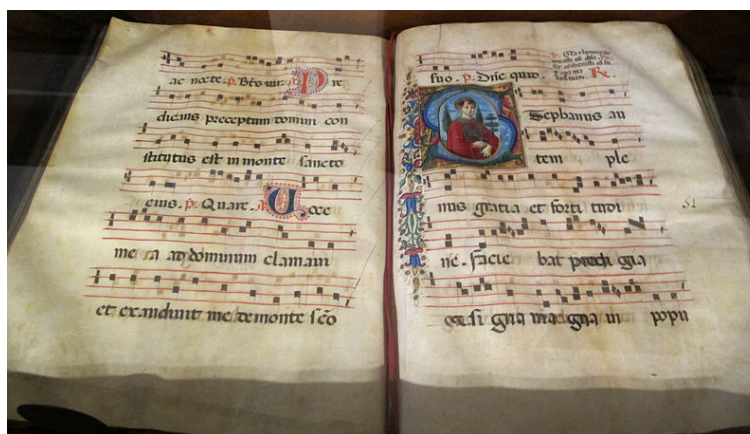 ac nocte. p. Bt̄s uir. Pre
dicans preceptum domini con
stitutus est in monte sancto
eius. p. Quare. Uoce
mea ad dominum clamaui
et exaudiuit me de monte sc̄o
suo. p. Dn̄e quid. R.
Stephanus au
tem ple
nus gratia et forti tudi
51
ne. facie bat prodi gia
et si gna magna in popu